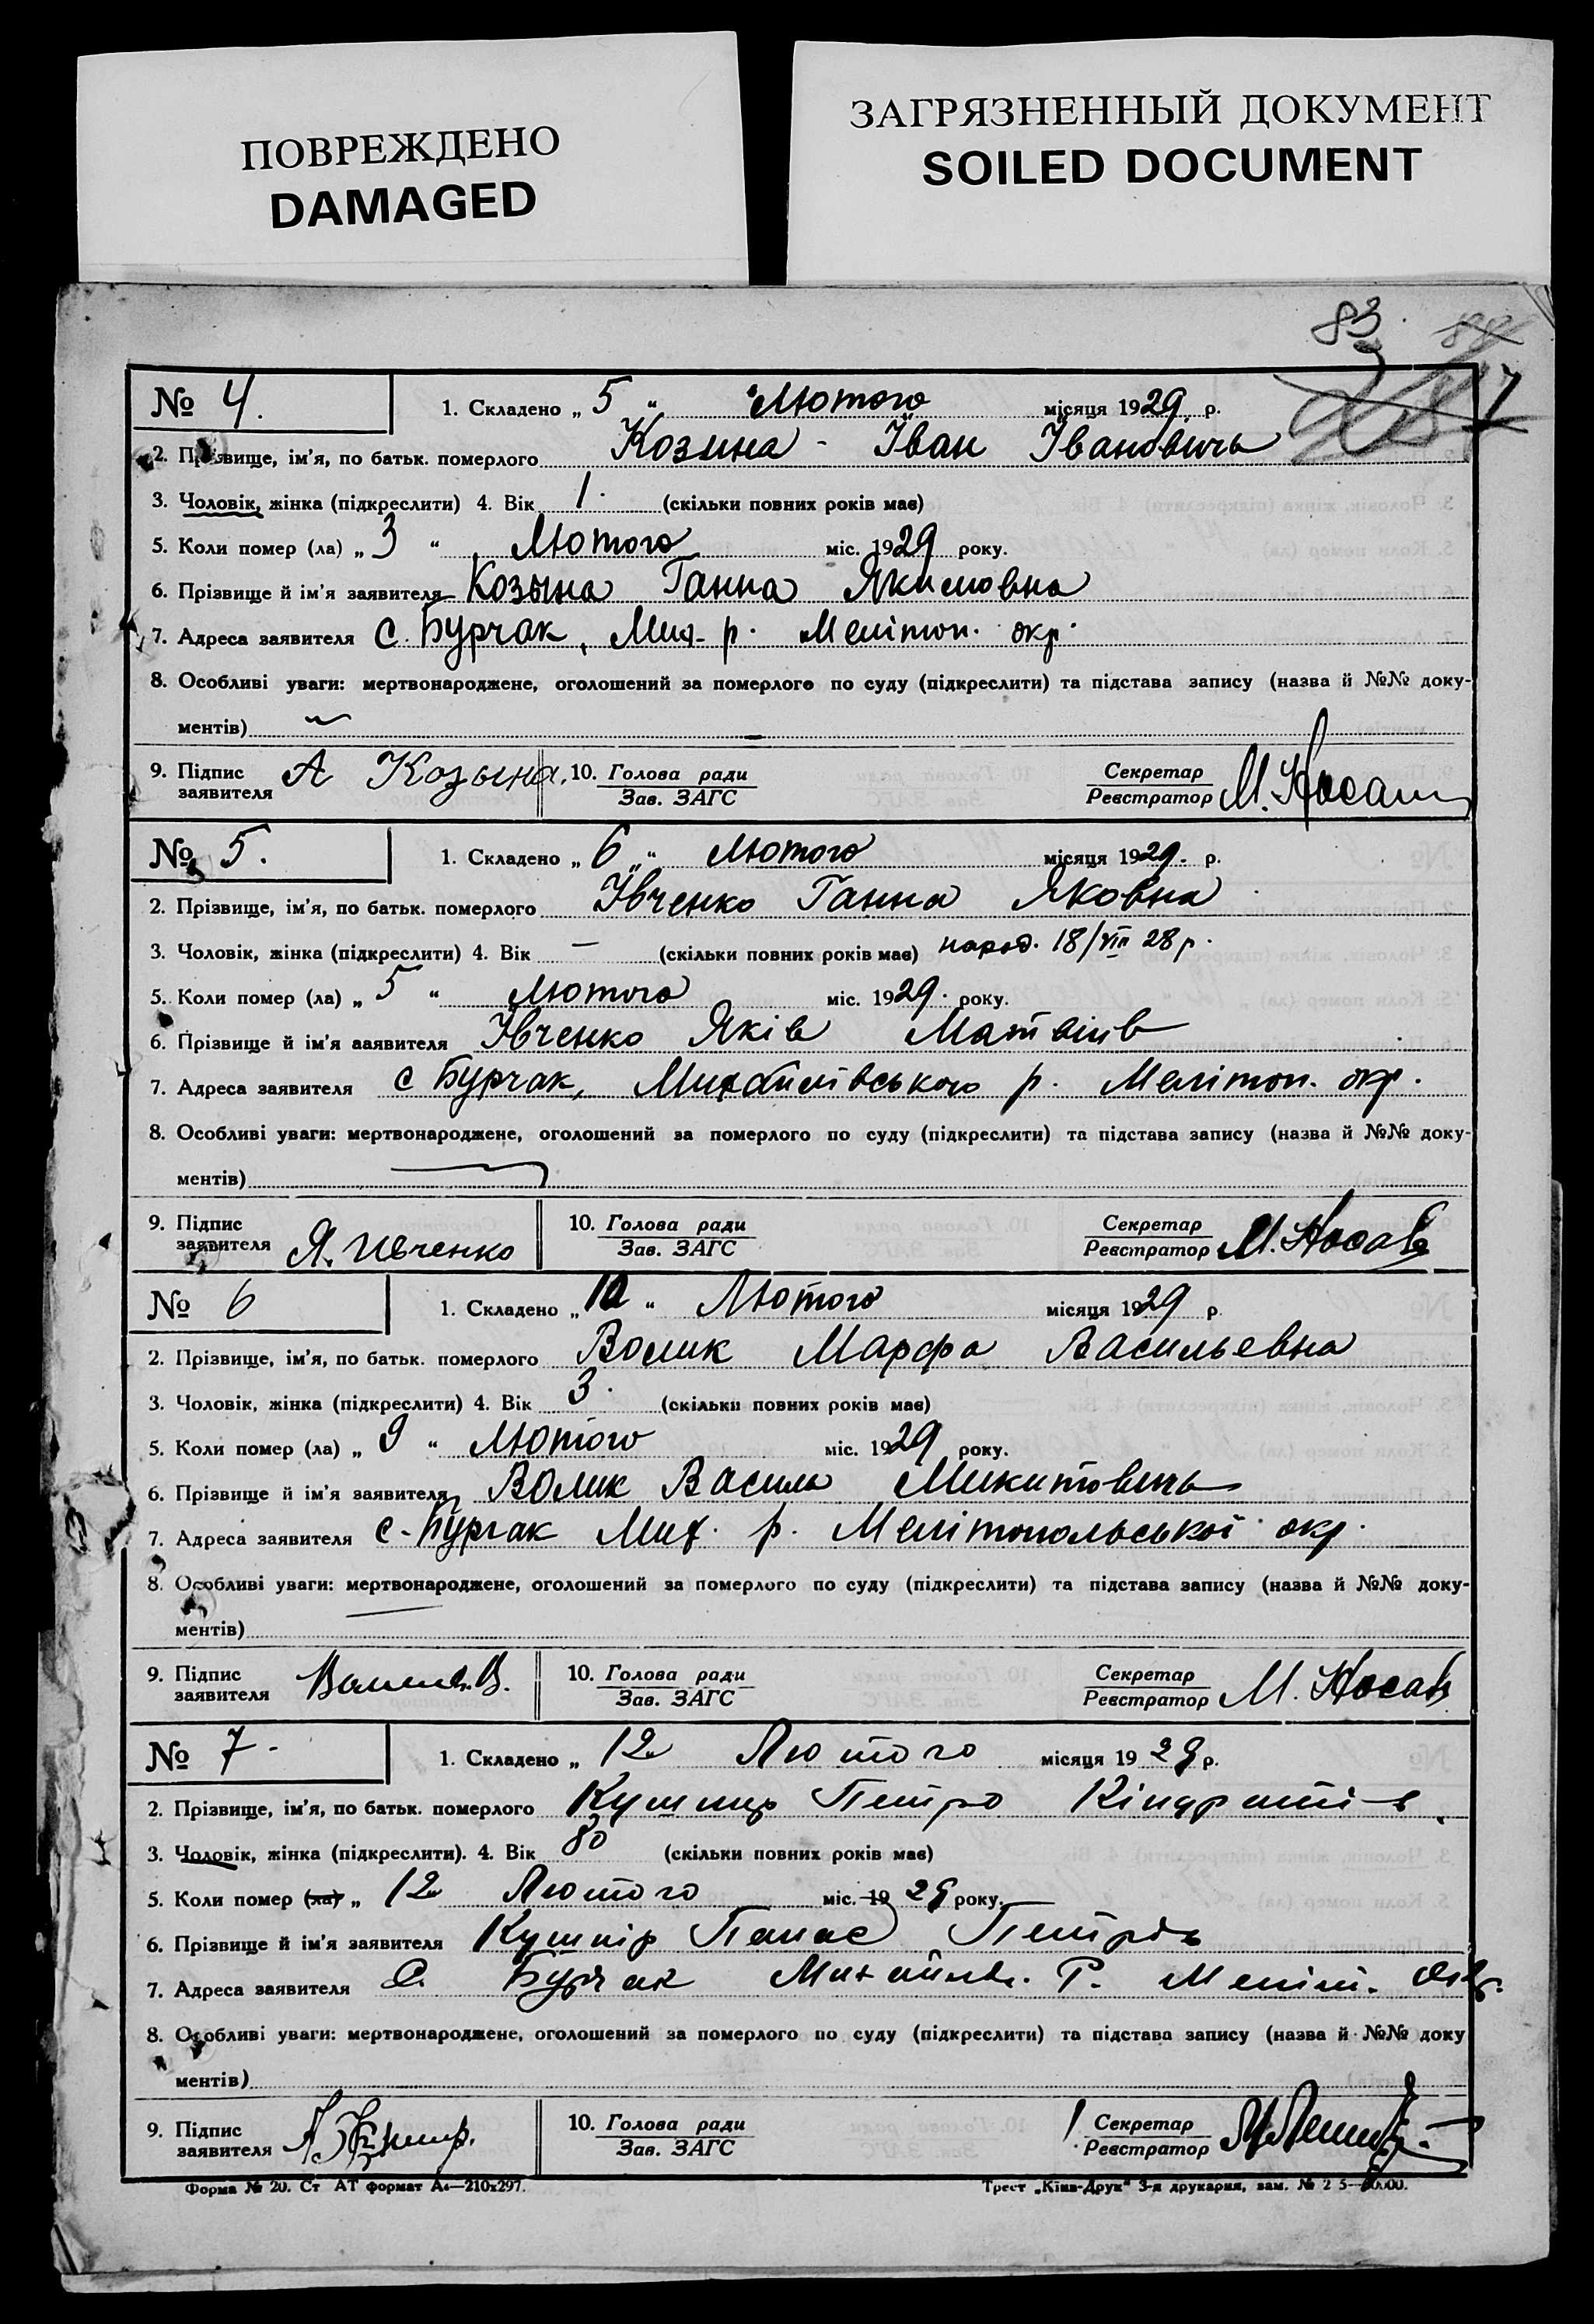 ПОВРЕЖДЕНО
DAMAGED
ЗАГРЯЗНЕННЫЙ ДОКУМЕНТ
SOILED DOCUMENT
83.
№ 4. 1. Складено „ 5 “ Лютого місяця 1929 р.
2. Прізвище, ім’я, по батьк. померлого Козина - Іван Івановичь
3. Чоловік, жінка (підкреслити) 4. Вік 1. (скільки повних років має)
5. Коли помер (ла) „ 3 “ Лютого міс. 1929 року.
6. Прізвище й ім’я заявителя Козына Ганна Якимовна
7. Адреса заявителя с. Бурчак, Мих. р. Мелітоп. окр.
8. Особливі уваги: мертвонароджене, оголошений за померлого по суду (підкреслити) та підстава запису (назва й №№ доку-
ментів)
9. Підпис заявителя А Козына. 10. Голова ради Зав. ЗАГС Секретар Реєстратор М. Носань
№ 5. 1. Складено „ 6 „ “ Лютого місяця 1929. р.
2. Прізвище, ім’я, по батьк. померлого Івченко Ганна Яковна
3. Чоловік, жінка (підкреслити) 4. Вік — (скільки повних років має) народ. 18/VIII 28 р.
5. Коли помер (ла) „ 5 “ Лютого міс. 1929. року.
6. Прізвище й ім’я заявителя Івченко Яків Матвіїв
7. Адреса заявителя с Бурчак, Михайлівського р. Мелітоп. окр.
8. Особливі уваги: мертвонароджене, оголошений за померлого по суду (підкреслити) та підстава запису (назва й №№ доку-
ментів)
9. Підпис заявителя Я. Ивченко 10. Голова ради Зав. ЗАГС Секретар Реєстратор М. Носань
№ 6 1. Складено „ 10 “ Лютого місяця 1929 р.
2. Прізвище, ім’я, по батьк. померлого Волик Марфа Васильевна
3. Чоловік, жінка (підкреслити) 4. Вік 3. (скільки повних років має)
5. Коли помер (ла) „ 9 “ Лютого міс. 1929 року.
6. Прізвище й ім’я заявителя Волик Василь Микитовичь
7. Адреса заявителя с. Бурчак Мих. р. Мелітопольської окр.
8. Особливі уваги: мертвонароджене, оголошений за померлого по суду (підкреслити) та підстава запису (назва й №№ доку-
ментів)
9. Підпис заявителя 10. Голова ради Зав. ЗАГС Секретар Реєстратор М. Носань
№ 7. 1. Складено „ 12 Лютого місяця 19 29 р.
2. Прізвище, ім’я, по батьк. померлого Кушнир Петро Кіндратів
3. Чоловік, жінка (підкреслити). 4. Вік 80 (скільки повних років має)
5. Коли помер (ла) „ 12 Лютого міс. 19 29 року.
6. Прізвище й ім’я заявителя Кушнір Панас Петрів
7. Адреса заявителя С. Бурчак Михайлів. Р. Меліт. Окр.
8. Особливі уваги: мертвонароджене, оголошений за померлого по суду (підкреслити) та підстава запису (назва й №№ доку
ментів)
9. Підпис заявителя 10. Голова ради Зав. ЗАГС Секретар Реєстратор
Форма № 20. Ст АТ формат А4—210х297. Трест „Київ-Друк“ 3-я друкарня, зам. № 2